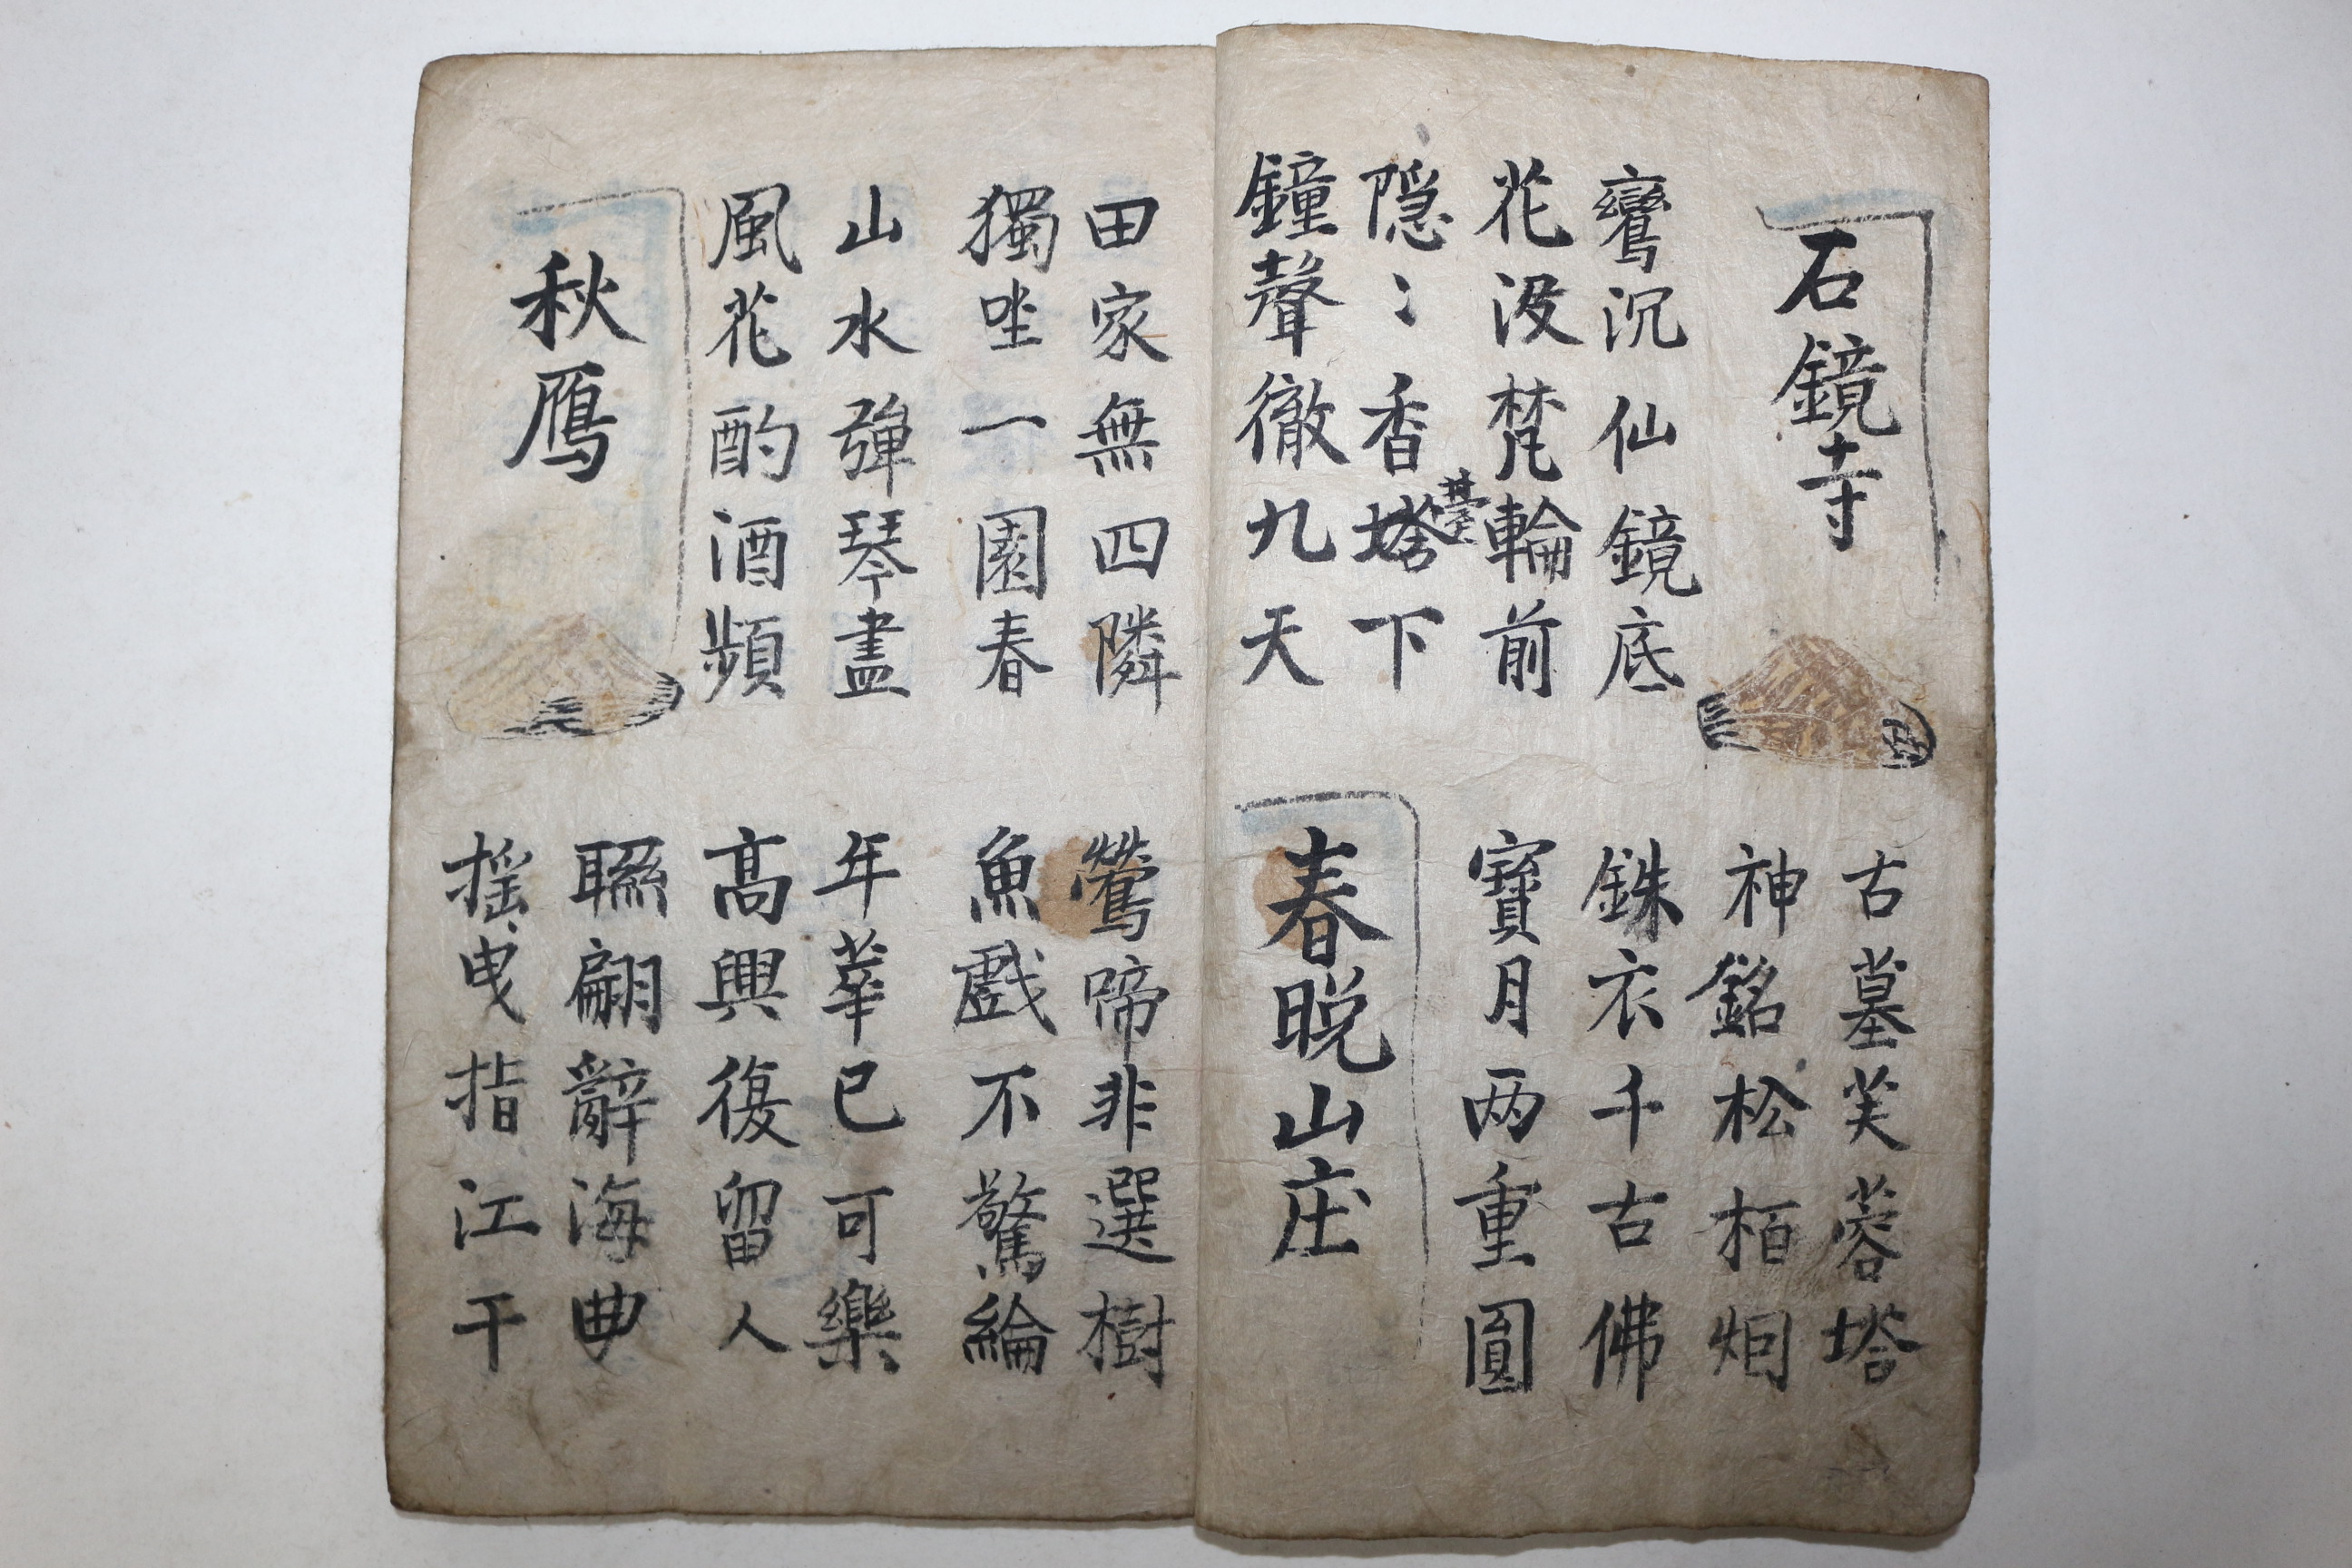 石鏡寺
古墓芙蓉塔
神銘松栢烟
鸞沉仙鏡底
花没梵輪前
銖衣千古佛
寶月两重圓
隠〻香塔下
臺
鐘聲徹九天
春晚山庄
田家無四隣
獨坐一園春
鶯啼非選樹
魚戲不驚綸
山水彈琴盡
風花酌酒頻
年華已可樂
高興復留人
秋鴈
聯翩辭海曲
揺曳指江干